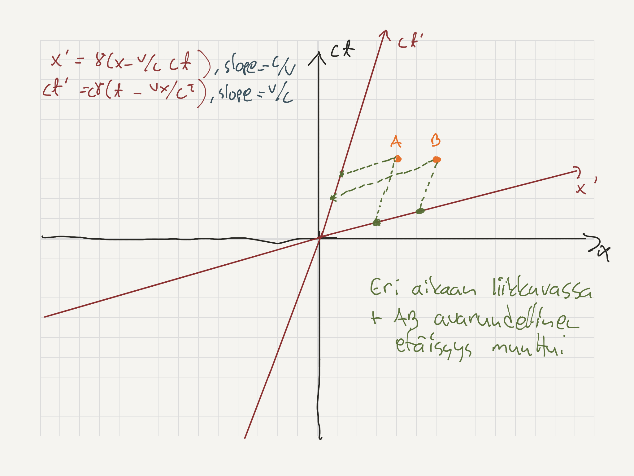 x' = γ(x - v/c ct), slope = c/v
ct' = cγ(t - vx/c²), slope = v/c
ct
ct'
A
B
x'
x
Eri aikaan liikkuvassa
+ AB avaruudellinen
etäisyys muuttui